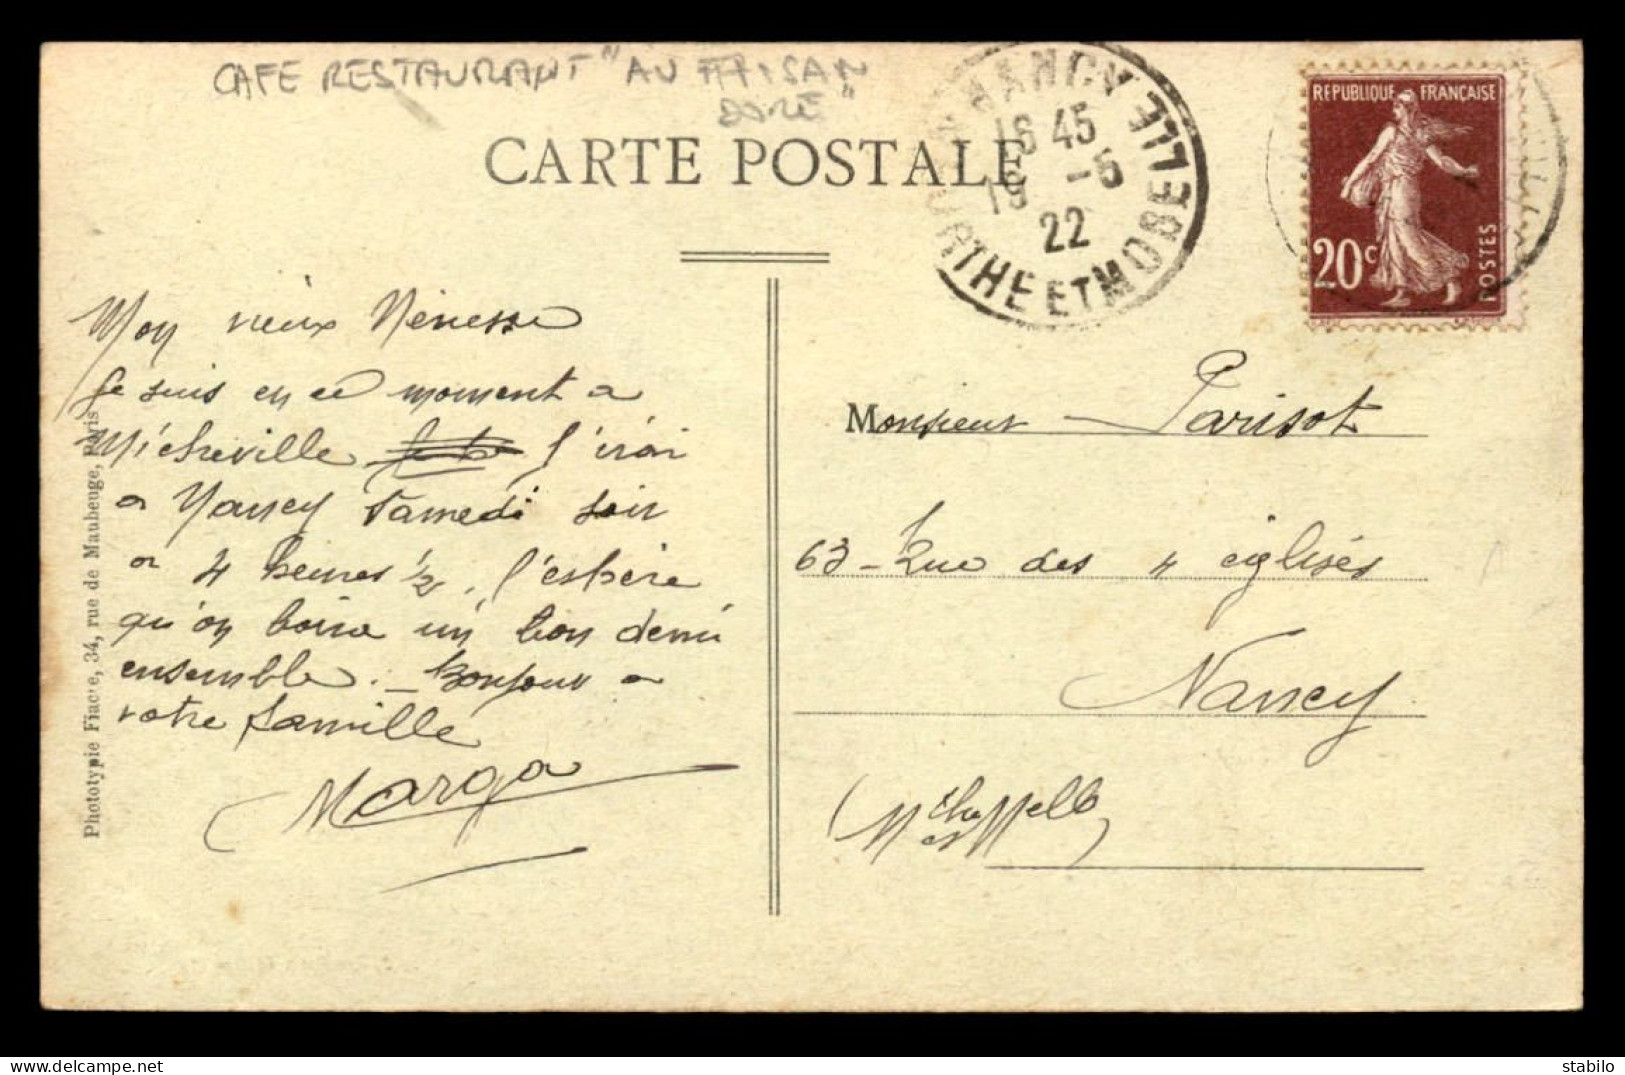 CAFE RESTAURANT "AU FAISAN
DORÉ"
CARTE POSTALE
NANCY
MEURTHE ET MOSELLE
16 45
19 -5
22
REPUBLIQUE FRANÇAISE
20c
POSTES
Mon vieux Nénesse
Je suis en ce moment a
Micheville j'irai
a Nancy samedi soir
a 4 heures 1/2, j'espère
qu'on boira un bon demi
ensemble. - Bonjour a
votre famille
Marga
Phototypie Fiacre, 34, rue de Maubeuge, Paris
Monsieur - Parisot
63 - Rue des 4 églises
Nancy
stabilo63